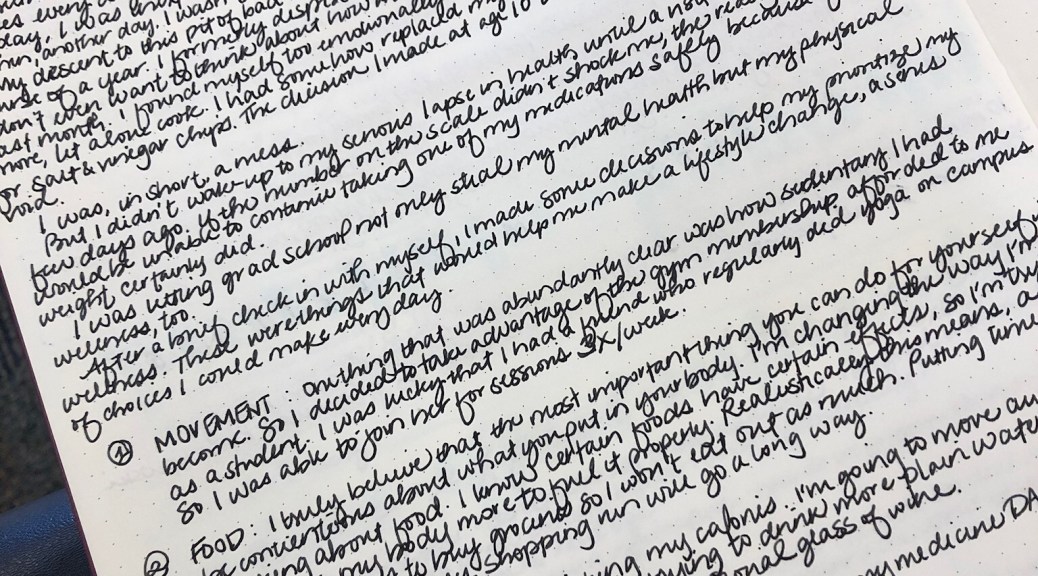 es every
day, I was
run, another day, I wasn
my descent to this pit of bad
of a year. I formerly
don't even want to think about how
last month. I found myself too emotionally
more, let alone cook. I had somehow replaced
or salt & vinegar chips. The decision I made at age 10
void.
I was, in short, a mess.
But I didn't wake up to my serious lapse in health until a
few days ago. If the number on the scale didn't shock me, the
would be unable to continue taking one of my medications safely because of
weight certainly did.
I was letting grad school not only steal my mental health but my physical
wellness, too.
After a brief check in with myself, I made some decisions to help my prioritize my
wellness. These were things that would help me make a lifestyle change, a series
of choices I could make every day.
① MOVEMENT : One thing that was abundantly clear was how sedentary I had
become. So I decided to take advantage of the gym membership afforded to me
as a student. I was lucky that I had a friend who regularly did yoga on campus
so I was able to join her for sessions 3x/week.
② FOOD : I truly believe that the most important thing you can do for yourself
be conscientious about what you put in your body. I'm changing the way I'm
about food. I know certain foods have certain effects, so I'm
my body more to fuel it properly. Realistically this means, a
to buy groceries so I won't eat out as much. Putting time
shopping run will go a long way.
my calories. I'm going to move
to drink more plain wate
glass of wine.
my medicine DA